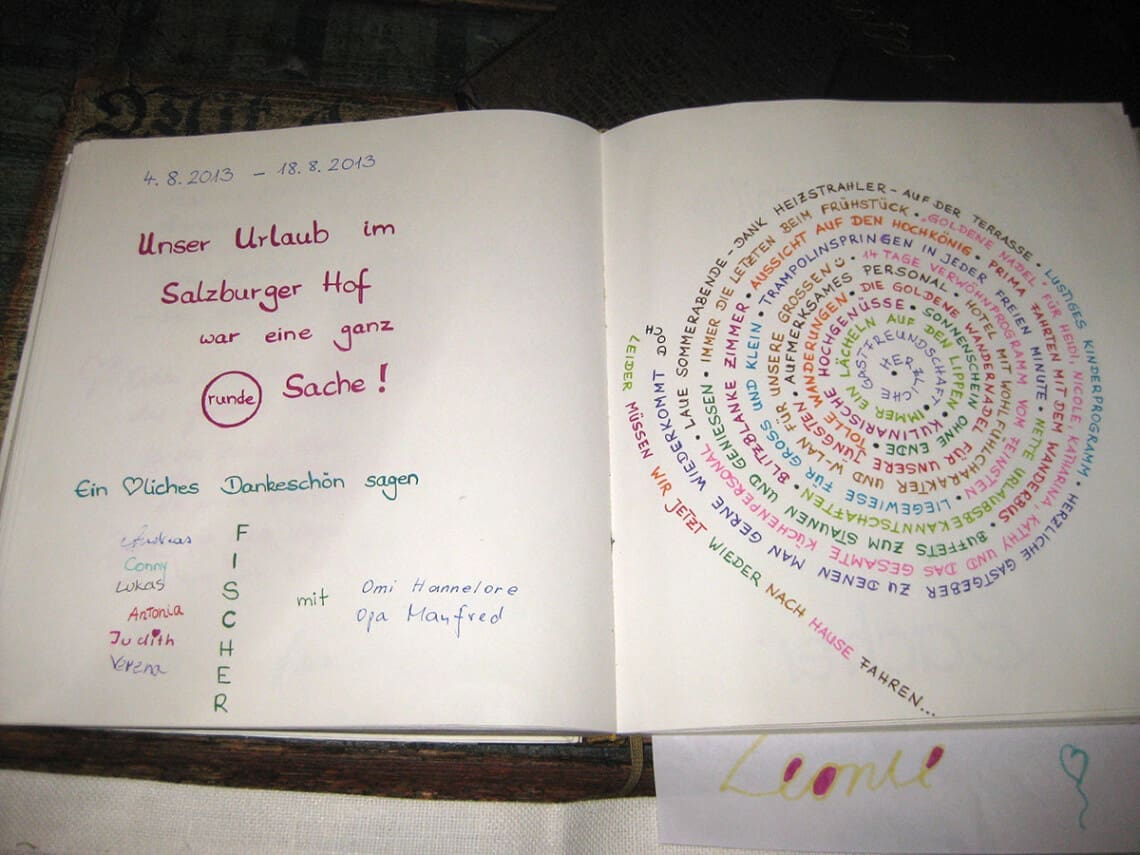 4. 8. 2013 – 18. 8. 2013
Unser Urlaub im
Salzburger Hof
war eine ganz
runde Sache!
Ein ♡liches Dankeschön sagen
Andreas
Conny
Lukas
Antonia
Judith
Verena
F
I
S
C
H
E
R
mit
Omi Hannelore
Opa Manfred
HERZLICHE GASTFREUNDSCHAFT • IMMER EIN LÄCHELN AUF DEN LIPPEN • KULINARISCHE HOCHGENÜSSE • SONNENSCHEIN OHNE ENDE • TOLLE WANDERUNGEN • DIE GOLDENE WANDERNADEL FÜR UNSERE JÜNGSTEN • AUFMERKSAMES PERSONAL • HOTEL MIT WOHLFÜHLCHARAKTER UND W-LAN FÜR UNSERE GROSSEN ☺ • 14 TAGE VERWÖHNPROGRAMM VOM FEINSTEN • LIEGEWIESE FÜR GROSS UND KLEIN • TRAMPOLINSPRINGEN IN JEDER FREIEN MINUTE • NETTE URLAUBSBEKANNTSCHAFTEN • BLITZBLANKE ZIMMER • AUSSICHT AUF DEN HOCHKÖNIG • PRIMA FAHRTEN MIT DEM WANDERBUS • BUFFETS ZUM STAUNEN UND GENIESSEN • IMMER DIE LETZTEN BEIM FRÜHSTÜCK • „GOLDENE NADEL" FÜR HEIDI, NICOLE, KATHARINA, KATHY UND DAS GESAMTE KÜCHENPERSONAL • LAUE SOMMERABENDE – DANK HEIZSTRAHLER – AUF DER TERRASSE • LUSTIGES KINDERPROGRAMM • HERZLICHE GASTGEBER ZU DENEN MAN GERNE WIEDERKOMMT DOCH
LEIDER MÜSSEN WIR JETZT WIEDER NACH HAUSE FAHREN...
Leonie
Mit